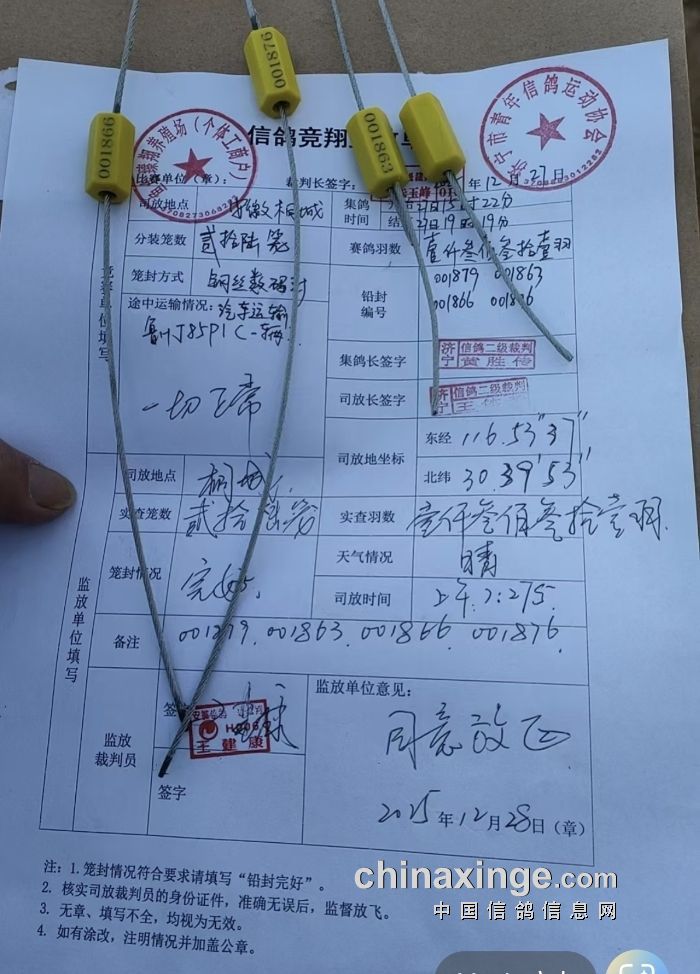 001876
001866
001863
信鸽竞翔
养殖场（个体工商户）
济宁市青年信鸽运动协会
比赛单位（章）：
裁判长签字：
年12月27日
司放地点
桐城
集鸽时间
27日15时22分
结
27日19时19分
分装笼数
贰拾陆笼
赛鸽羽数
壹仟叁佰叁拾壹羽
笼封方式
钢丝数码封
铅封编号
001879 001863
001866 001876
竞赛单位填写
途中运输情况：汽车运输
一切正常
集鸽长签字
济宁 信鸽二级裁判
黄胜传
司放长签字
济宁 信鸽二级裁判
司放地坐标
东经
116.53'37"
北纬
30.39'53"
监放单位填写
司放地点
桐城
实查笼数
贰拾陆笼
实查羽数
壹仟叁佰叁拾壹羽
笼封情况
完好
天气情况
晴
司放时间
上午7:27分
备注
001879. 001863. 001866. 001876.
监放裁判员
签字
王健康
签字
监放单位意见：
同意放飞
2025年12月28日（章）
注：1. 笼封情况符合要求请填写“铅封完好”。
2. 核实司放裁判员的身份证件，准确无误后，监督放飞。
3. 无章、填写不全，均视为无效。
4. 如有涂改，注明情况并加盖公章。
chinaxinge.com
中国信鸽信息网